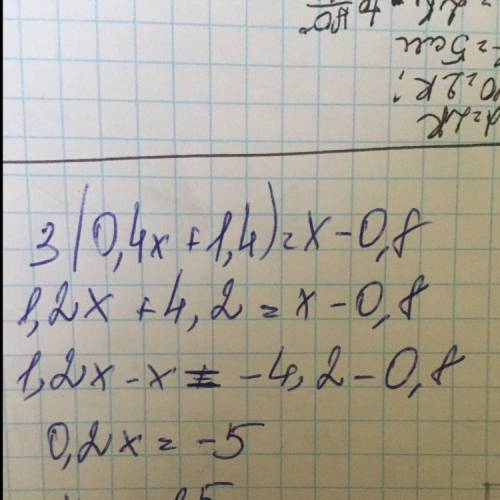 3(0,4x+1,4)=x-0,8
1,2x+4,2=x-0,8
1,2x-x=-4,2-0,8
0,2x=-5